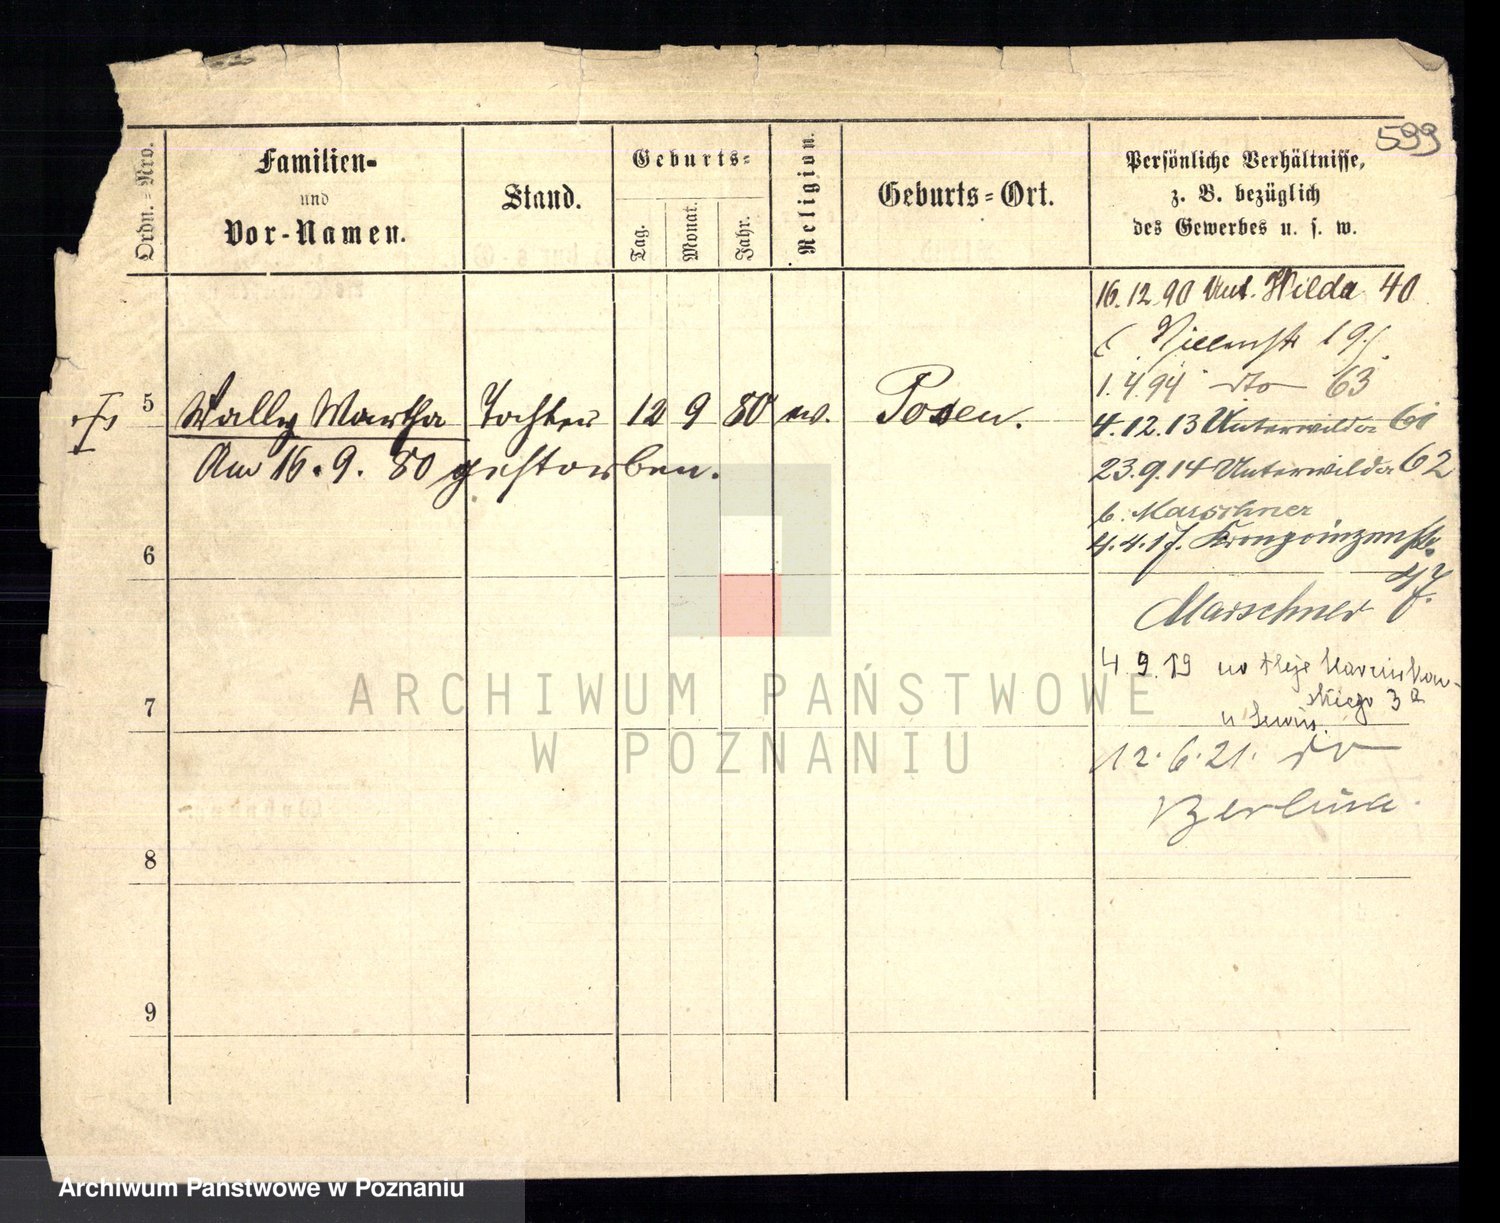 599
Ordn.-Nro.
Familien-
und
Vor-Namen.
Stand.
Geburts-
Tag.
Monat.
Jahr.
Religion.
Geburts-Ort.
Persönliche Verhältnisse,
z. B. bezüglich
des Gewerbes u. s. w.
16.12.90 Unt. Wilda 40
1.4.94 dto 63
5 Wally Martha Tochter 12 9 80 ev. Posen.
4.12.13 Unterwilda 60
Am 16.9.80 gestorben.
23.9.14 Unterwilda 62
b. Marschner
6
4.4.17. Kronprinzenstr.
47.
Marschner
4 9.19
skiego 3a
7
12.6.21.
8
9
ARCHIWUM PAŃSTWOWE
W POZNANIU
Archiwum Państwowe w Poznaniu